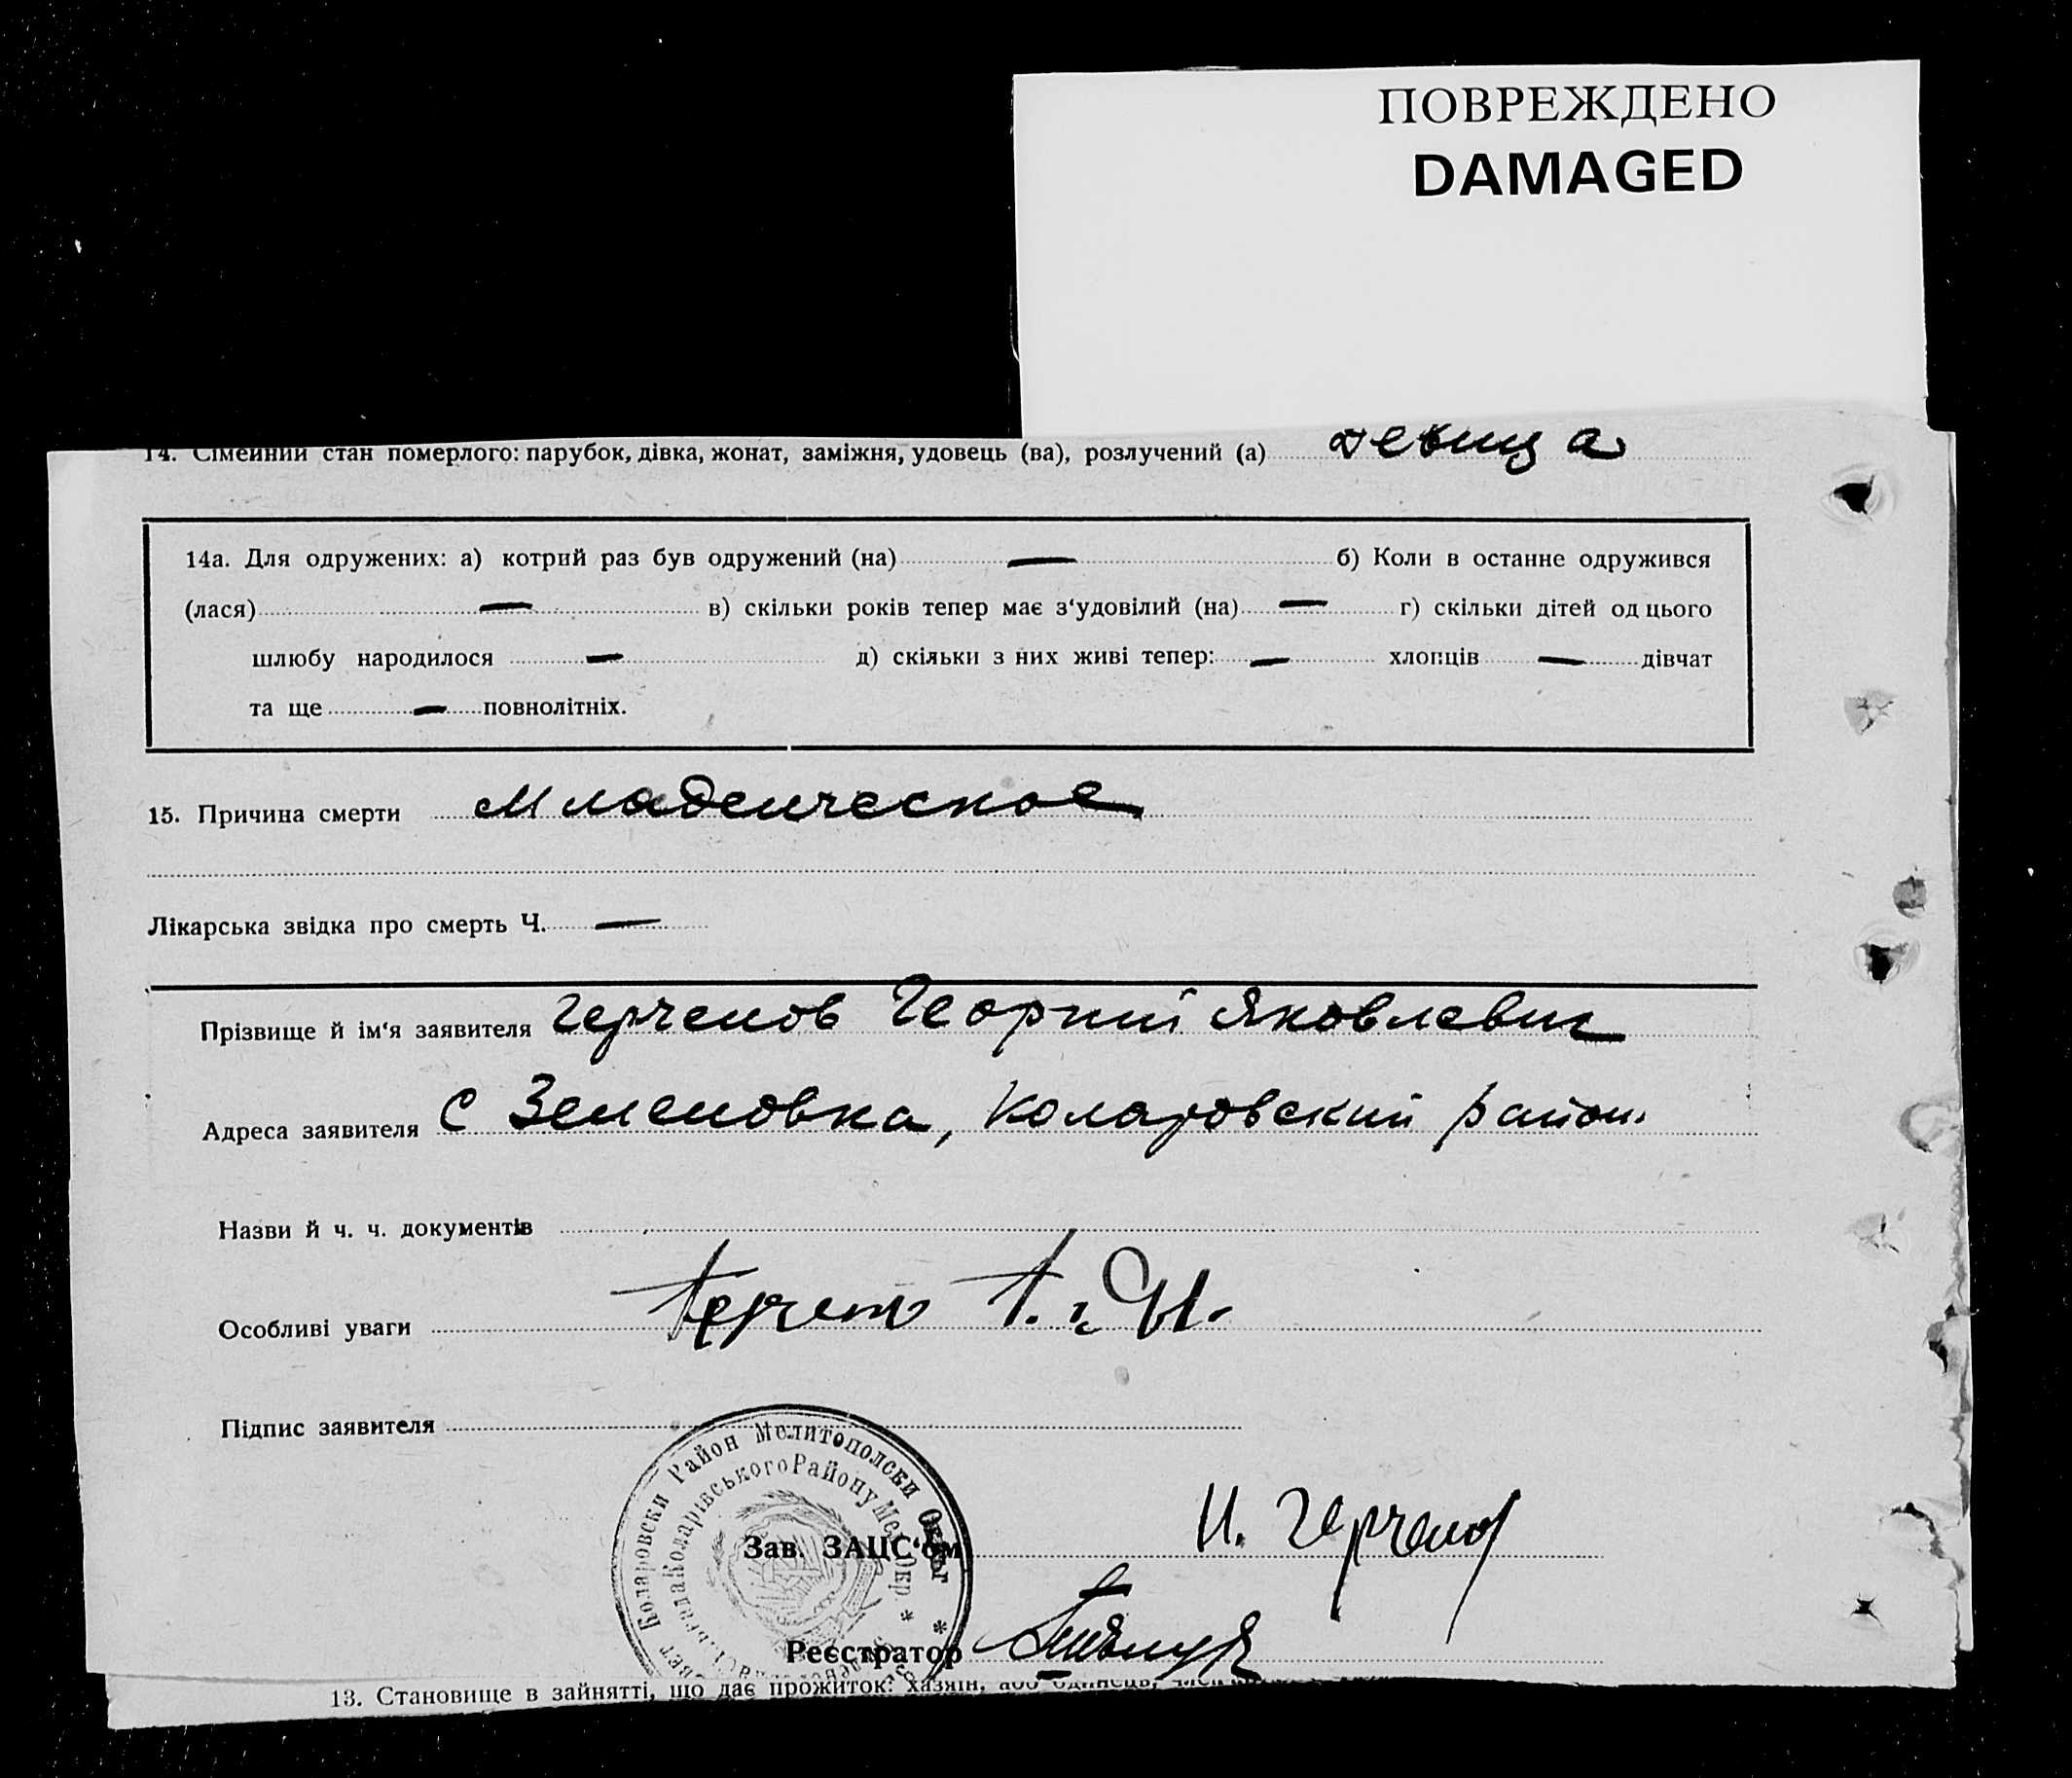 ПОВРЕЖДЕНО
DAMAGED
14. Сімейний стан померлого: парубок, дівка, жонат, заміжня, удовець (ва), розлучений (а) девица
14а. Для одружених: а) котрий раз був одружений (на) — б) Коли в останне одружився
(лася) — в) скільки років тепер має з'удовілий (на) — г) скільки дітей од цього
шлюбу народилося — д) скільки з них живі тепер: — хлопців — дівчат
та ще — повнолітніх.
15. Причина смерти Младенческое
Лікарська звідка про смерть Ч. —
Прізвище й ім'я заявителя Герченов Георгий Яковлевич
Адреса заявителя С Зеленовка, Коларовский район
Назви й ч. ч. документів
Особливі уваги
Підпис заявителя
Коларовски Район Мелитополски Окръг *
Коларівського Району Мел. Окр. *
Зав. ЗАЦС'ом И. Герченов
Реєстратор
13. Становище в зайнятті, що дає прожиток: хазяїн, або одинець,